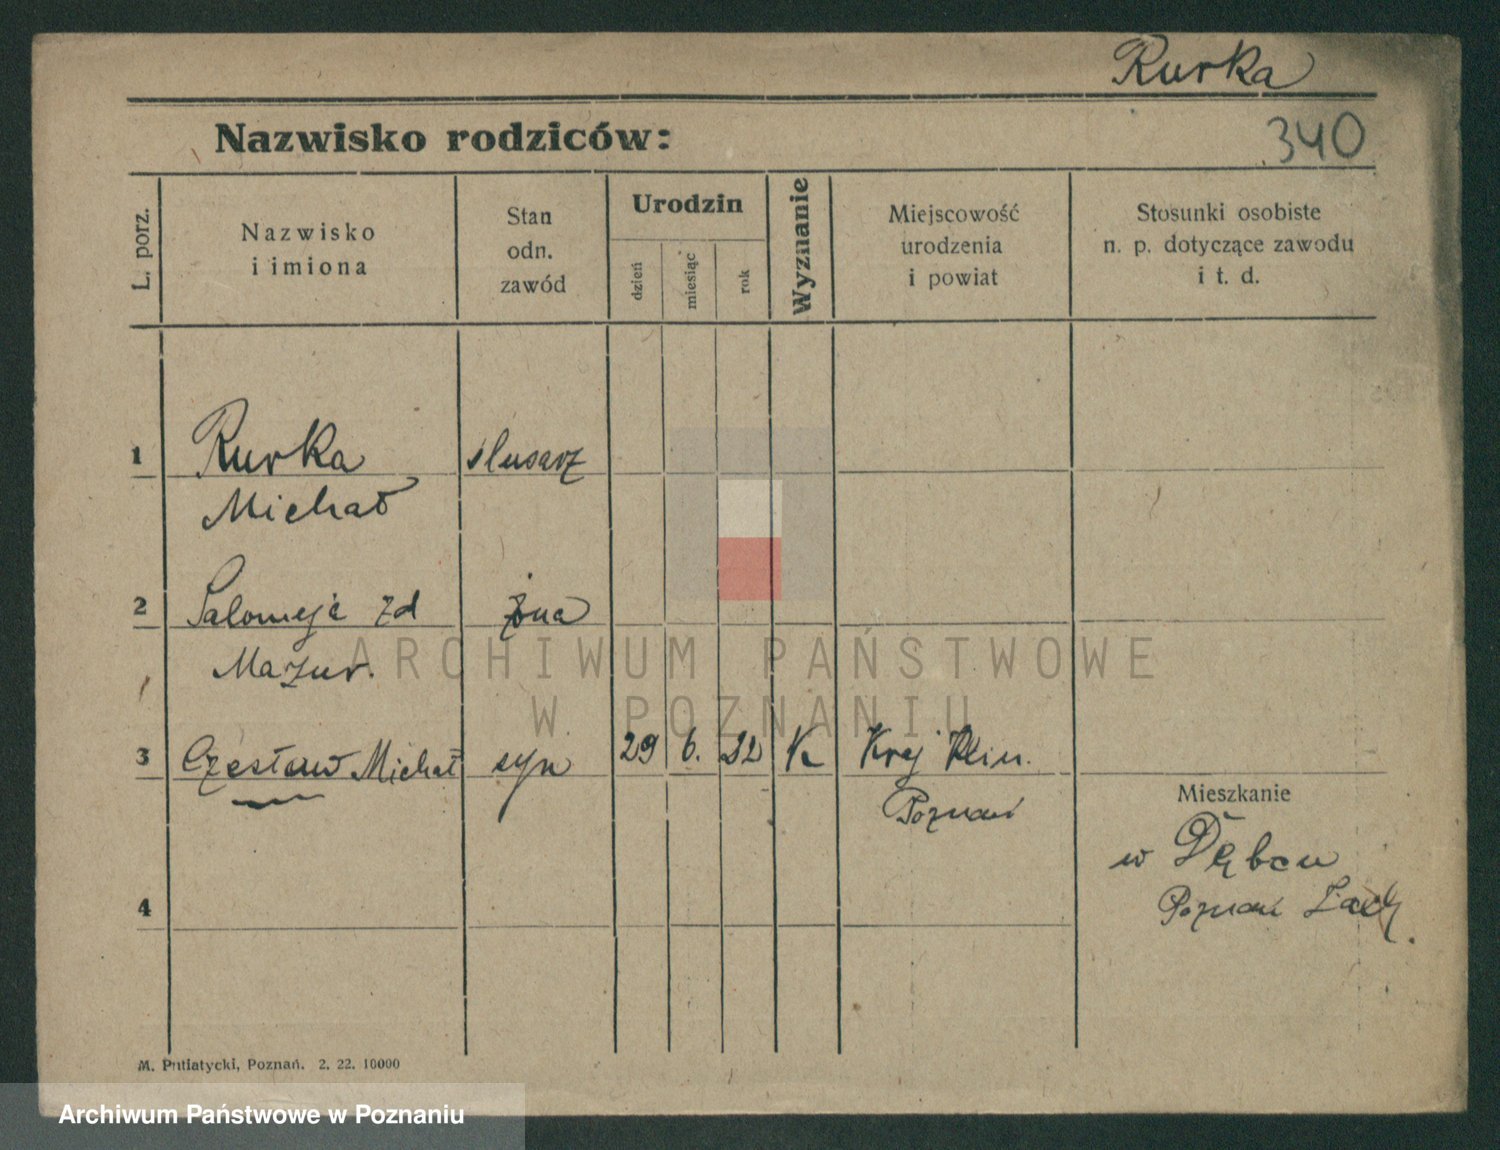 Rurka
Nazwisko rodziców:
340
L. porz.
Nazwisko
i imiona
Stan
odn.
zawód
Urodzin
dzień
miesiąc
rok
Wyznanie
Miejscowość
urodzenia
i powiat
Stosunki osobiste
n. p. dotyczące zawodu
i t. d.
1 Rurka ślusarz
Michał
2 Salomeja zd żona
Mazur.
3 Czesław Michał syn 29 6. 22 K Kraj Klin.
Poznań
Mieszkanie
w Dębcu
Poznań Zach.
4
M. Putiatycki, Poznań. 2. 22. 10000
ARCHIWUM PAŃSTWOWE
W POZNANIU
Archiwum Państwowe w Poznaniu